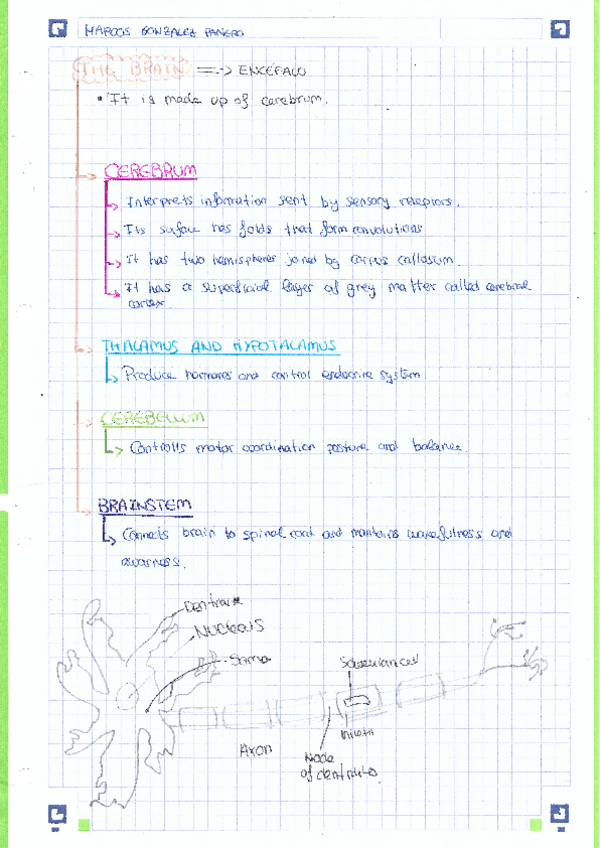 MARCOS GONZALEZ PANERO
THE BRAIN ==-> ENCÉFALO
• It is made up of cerebrum.
CEREBRUM
Interprets information sent by sensory receptors.
Its surface has folds that form convolutions
It has two hemispheres joined by corpus callosum.
It has a superficial layer of grey matter called cerebral
cortex.
THALAMUS AND HYPOTALAMUS
Produce hormones and control endocrine system
CEREBELLUM
Controlls motor coordination posture and balance.
BRAINSTEM
Connects brain to spinal cord and mantains wakefullness and
awarness.
NUCLEUS
Soma
Axon
Node
of